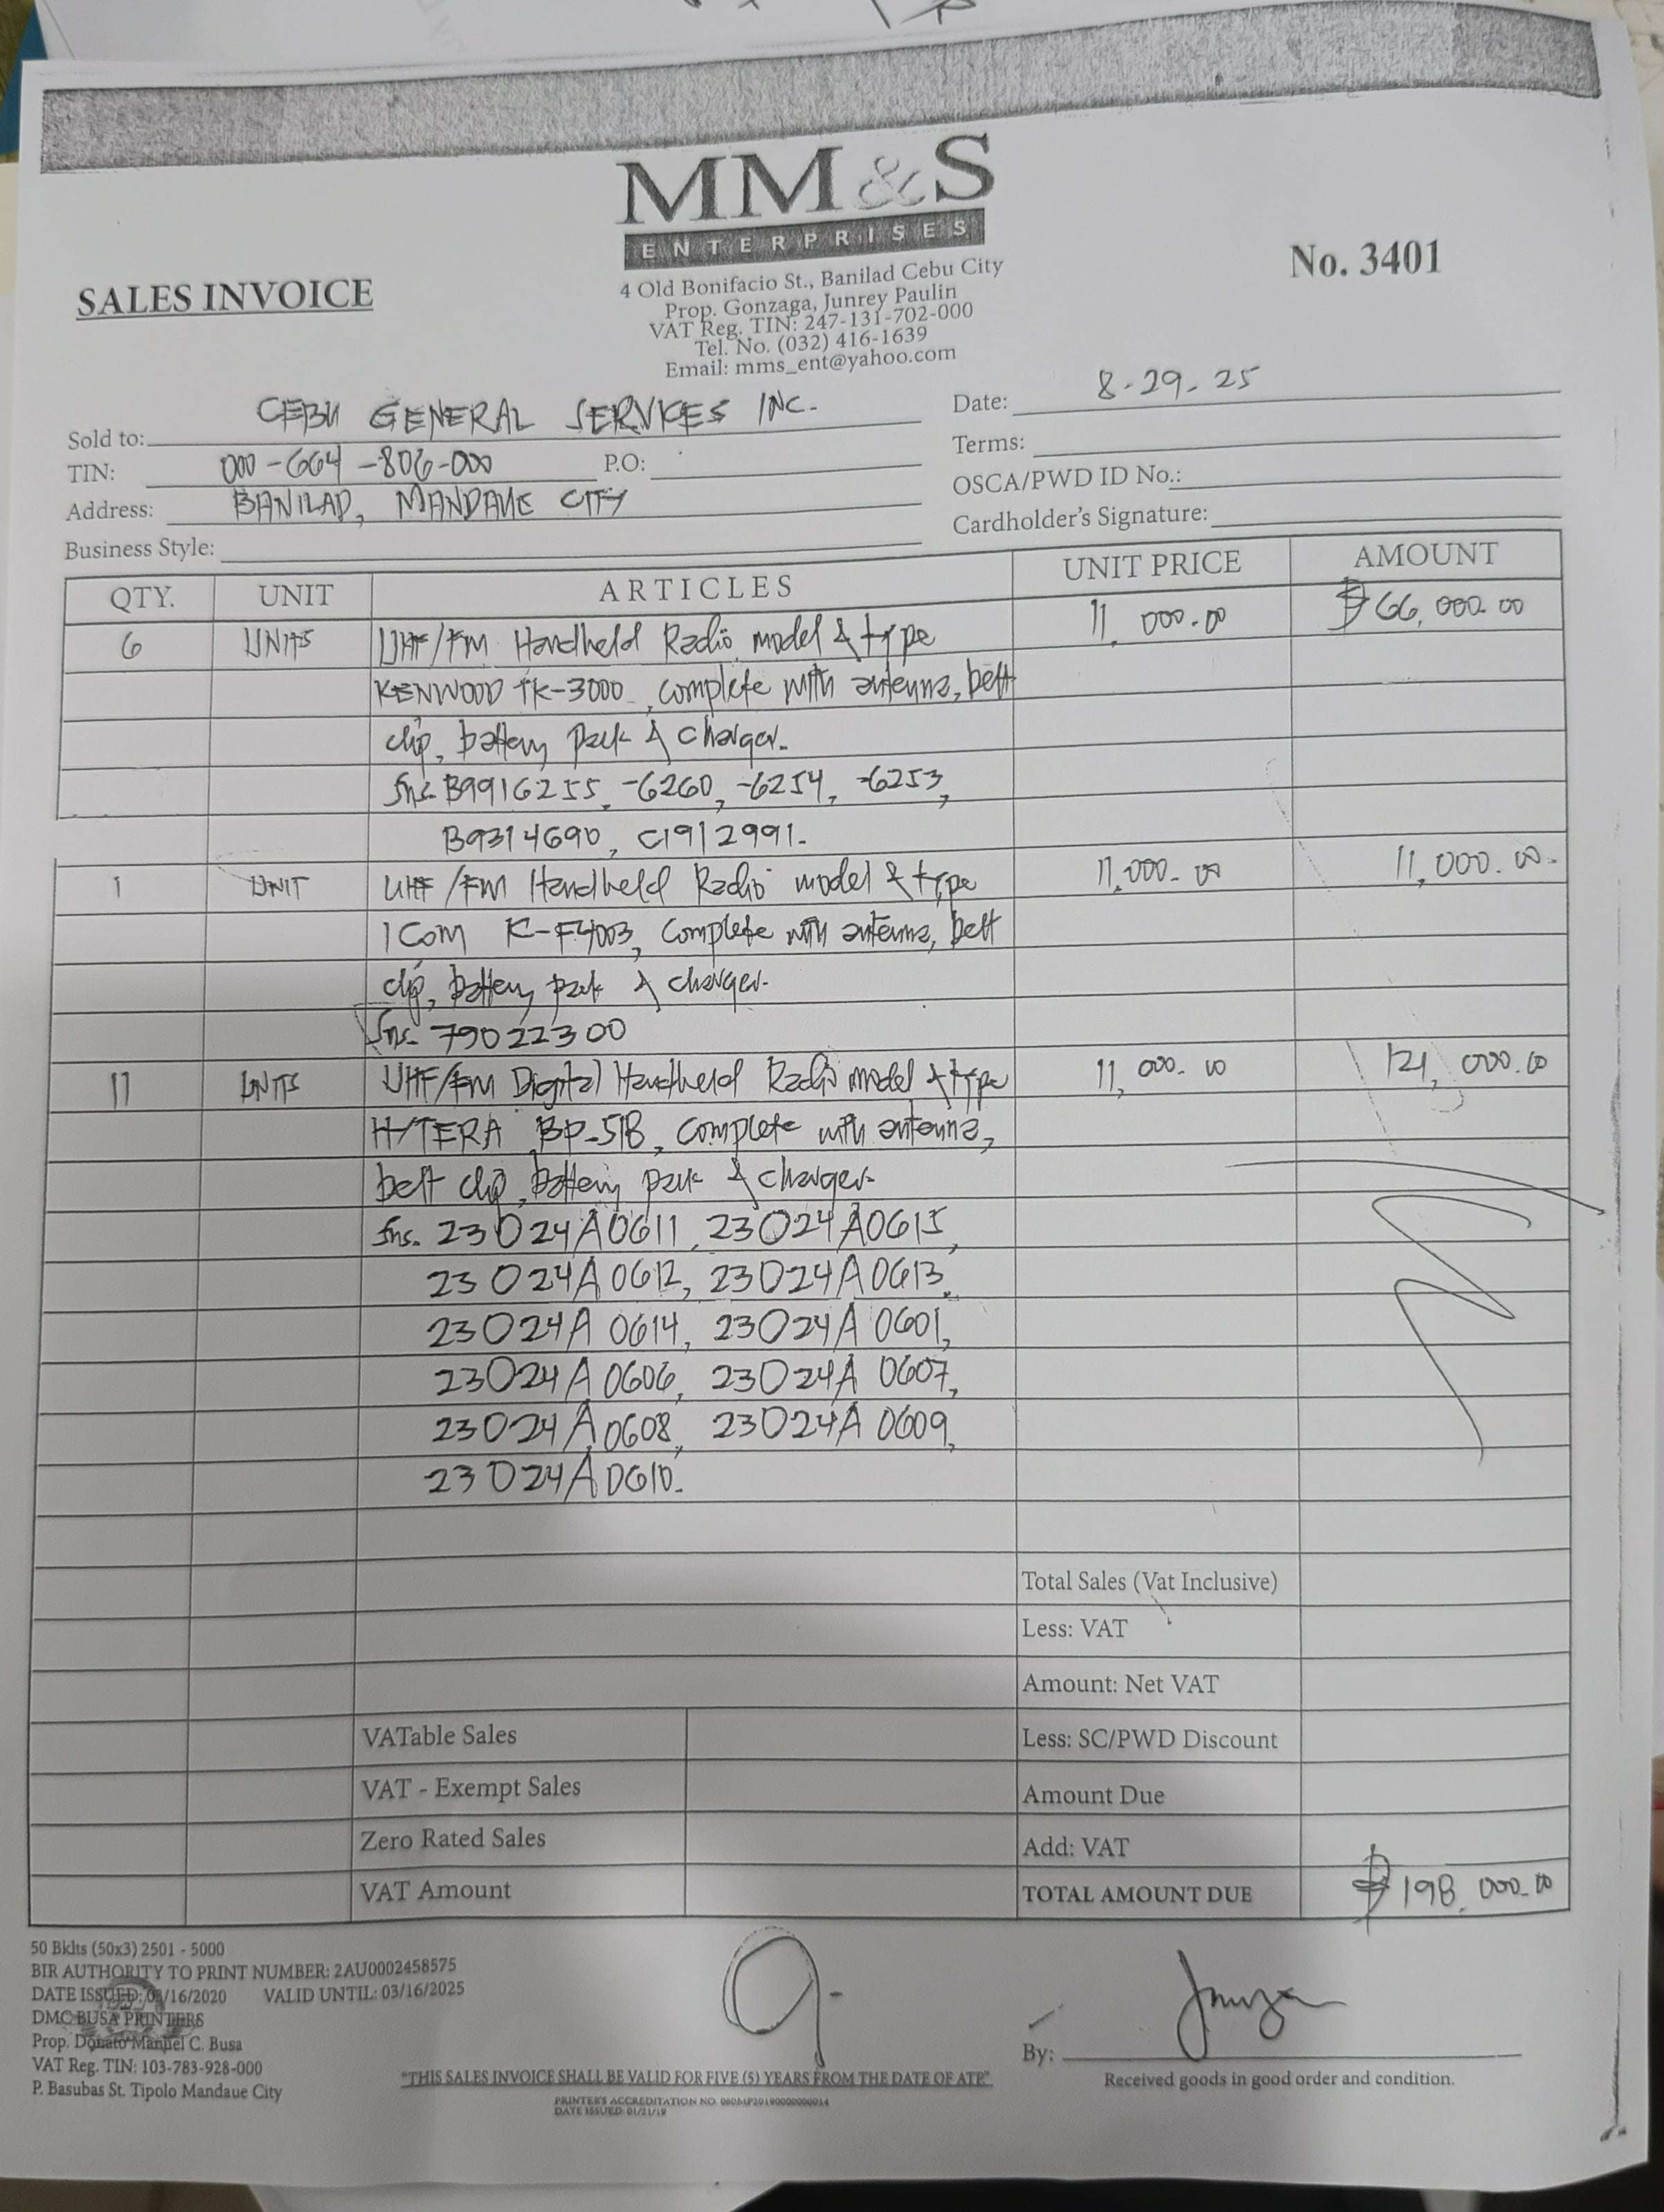 MM&S
ENTERPRISES
4 Old Bonifacio St., Banilad Cebu City
Prop. Gonzaga, Junrey Paulin
VAT Reg. TIN: 247-131-702-000
Tel. No. (032) 416-1639
Email: mms_ent@yahoo.com
SALES INVOICE
No. 3401
Sold to: CEBU GENERAL SERVICES INC.
Date: 8-29-25
TIN: 000-664-806-000 P.O:
Terms:
Address: BANILAD, MANDAUE CITY
OSCA/PWD ID No.:
Business Style:
Cardholder's Signature:
QTY. UNIT ARTICLES UNIT PRICE AMOUNT
6 UNITS UHF/FM Handheld Radio model & type 11,000.00 ₱66,000.00
KENWOOD TK-3000, complete with antenna, belt
clip, battery pack & charger.
Sns. B9916255, -6260, -6254, -6253,
B9314690, C1912991.
1 UNIT UHF/FM Handheld Radio model & type 11,000.00 11,000.00
ICOM IC-F4003, complete with antenna, belt
clip, battery pack & charger.
Sns. 79022300
11 UNITS UHF/FM Digital Handheld Radio model & type 11,000.00 121,000.00
HYTERA BP-51B, complete with antenna,
belt clip, battery pack & charger.
Sns. 23O24A0611, 23O24A0615,
23O24A0612, 23O24A0613,
23O24A0614, 23O24A0601,
23O24A0606, 23O24A0607,
23O24A0608, 23O24A0609,
23O24A0610.
Total Sales (Vat Inclusive)
Less: VAT
Amount: Net VAT
VATable Sales Less: SC/PWD Discount
VAT - Exempt Sales Amount Due
Zero Rated Sales Add: VAT
VAT Amount TOTAL AMOUNT DUE ₱198,000.00
50 Bklts (50x3) 2501 - 5000
BIR AUTHORITY TO PRINT NUMBER: 2AU0002458575
DATE ISSUED: 03/16/2020 VALID UNTIL: 03/16/2025
DMC BUSA PRINTERS
Prop. Donato Manuel C. Busa
VAT Reg. TIN: 103-783-928-000
P. Basubas St. Tipolo Mandaue City
"THIS SALES INVOICE SHALL BE VALID FOR FIVE (5) YEARS FROM THE DATE OF ATP."
PRINTER'S ACCREDITATION NO.
DATE ISSUED: 01/21/19
By:
Received goods in good order and condition.